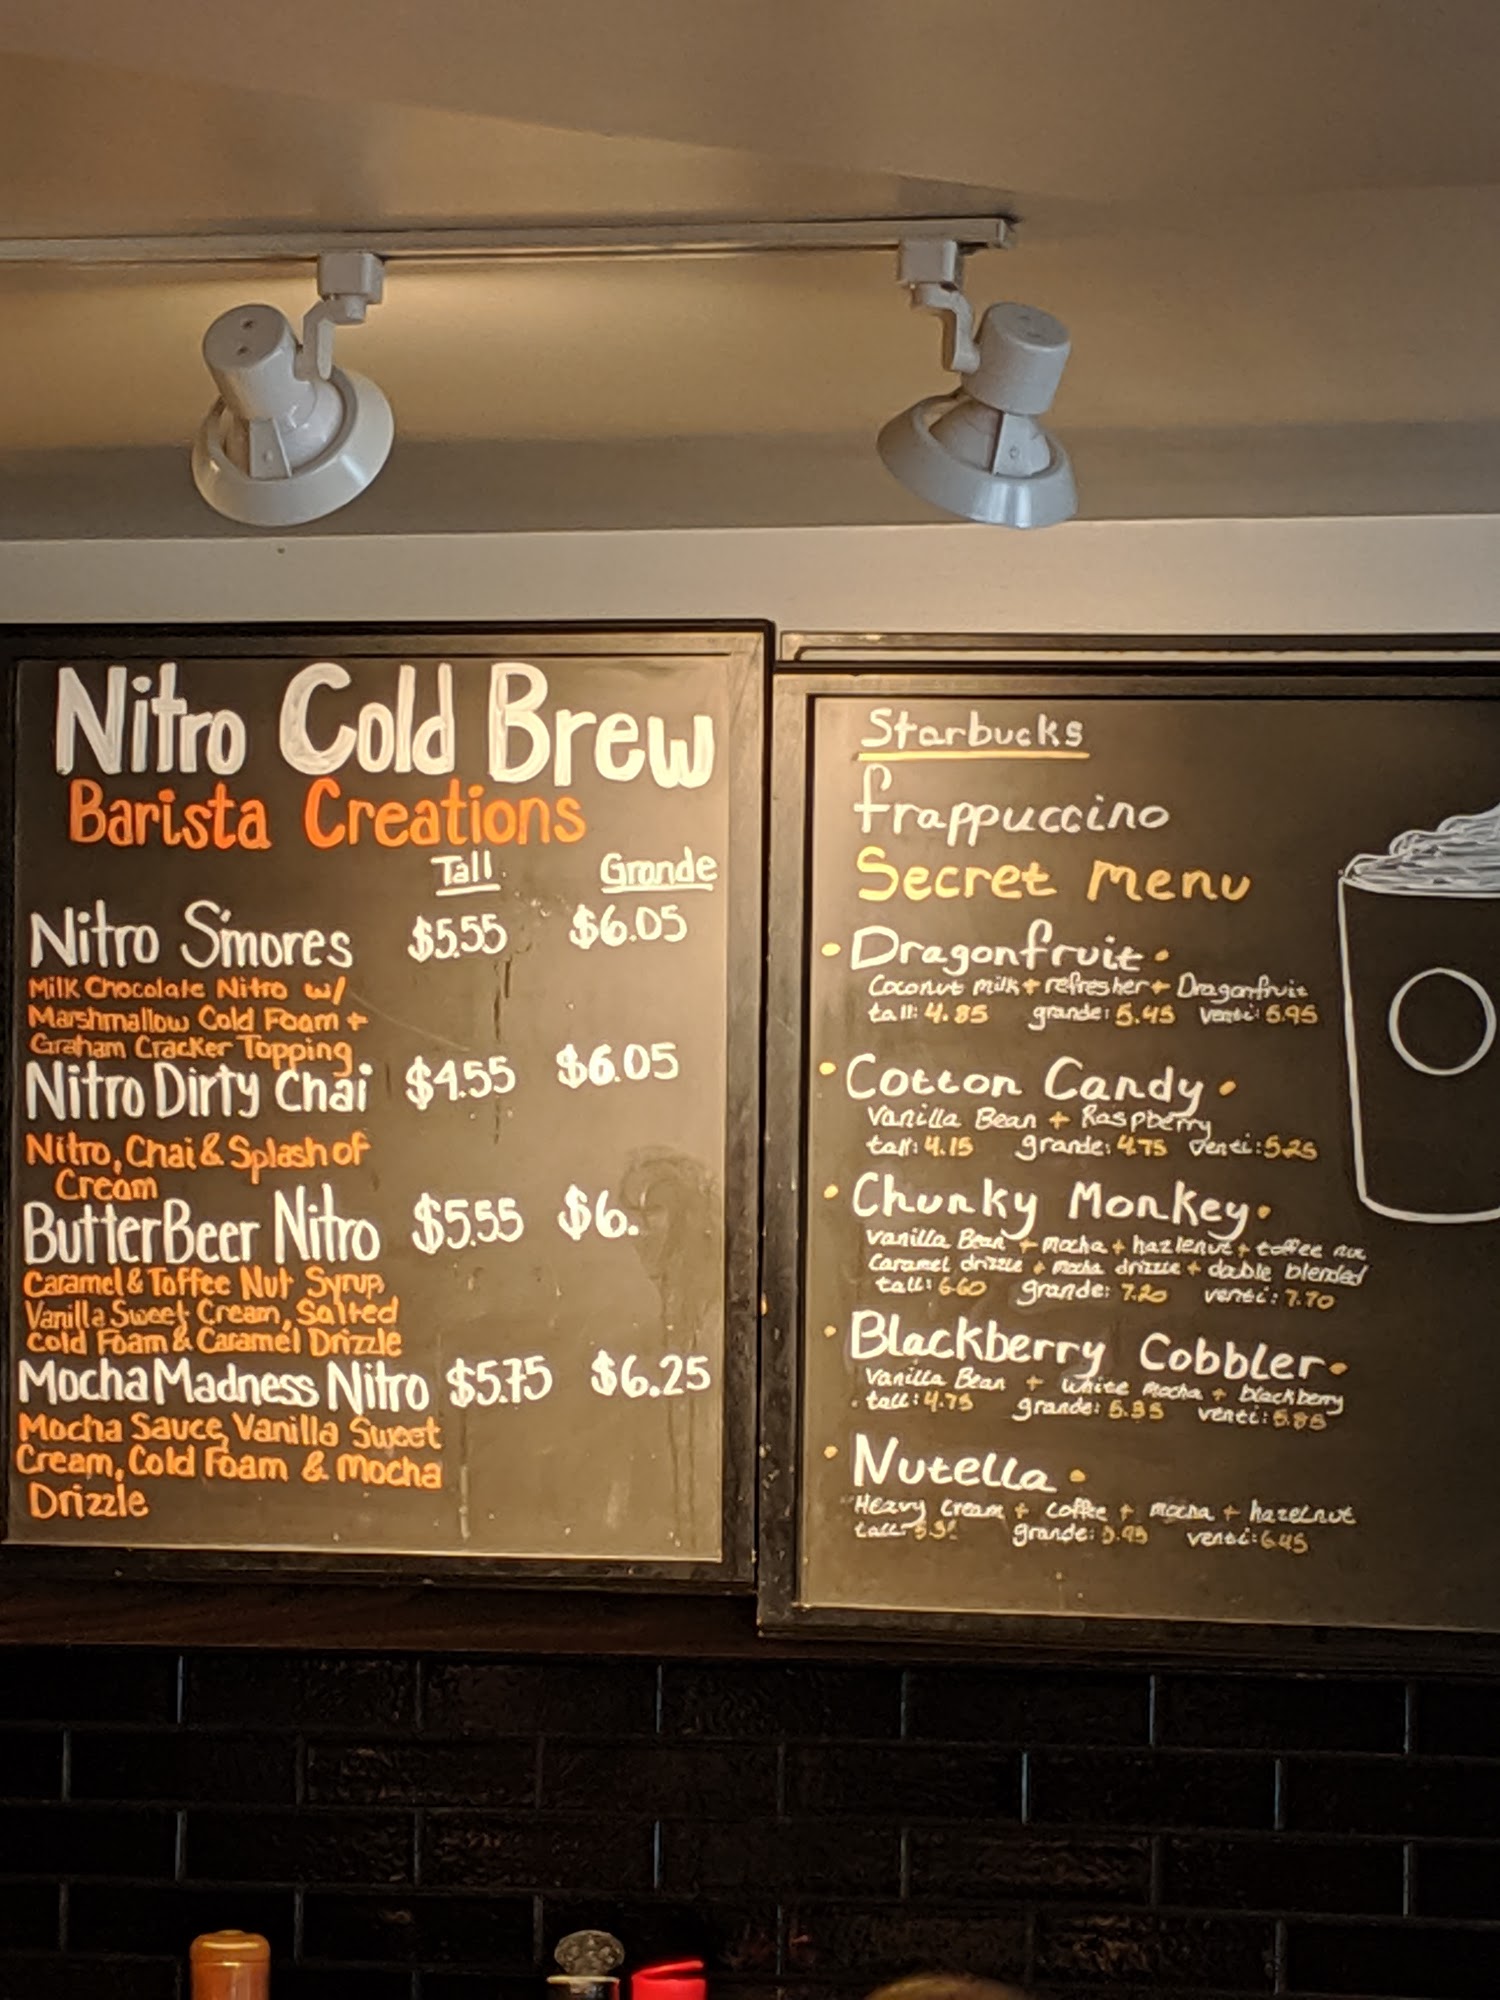 Nitro Cold Brew
Barista Creations
Tall Grande
Nitro S'mores $5.55 $6.05
Milk Chocolate Nitro w/
Marshmallow Cold Foam +
Graham Cracker Topping
Nitro Dirty Chai $4.55 $6.05
Nitro, Chai & Splash of
Cream
ButterBeer Nitro $5.55 $6.
Caramel & Toffee Nut Syrup,
Vanilla Sweet Cream, Salted
Cold Foam & Caramel Drizzle
Mocha Madness Nitro $5.75 $6.25
Mocha Sauce, Vanilla Sweet
Cream, Cold Foam & Mocha
Drizzle
Starbucks
frappuccino
Secret Menu
• Dragonfruit •
Coconut milk + refresher + Dragonfruit
tall: 4.85 grande: 5.45 venti: 5.95
• Cotton Candy •
Vanilla Bean + Raspberry
tall: 4.15 grande: 4.75 venti: 5.25
• Chunky Monkey •
Vanilla Bean + mocha + hazlenut + toffee nut
Caramel drizzle + mocha drizzle + double blended
tall: 6.60 grande: 7.20 venti: 7.70
• Blackberry Cobbler •
Vanilla Bean + white mocha + blackberry
tall: 4.75 grande: 5.35 venti: 5.85
• Nutella •
Heavy Cream + coffee + mocha + hazelnut
tall: grande: 5.95 venti: 6.45